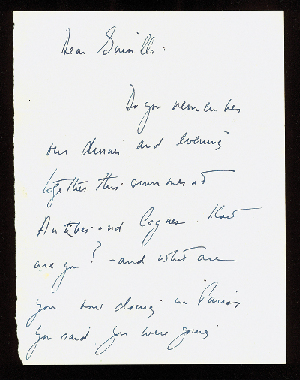 Dear
Do you remember
our dinner and evening
together this summer at
Antibes and Cagnes. How
are you? - and what are
you now doing in Paris,
You said you were going